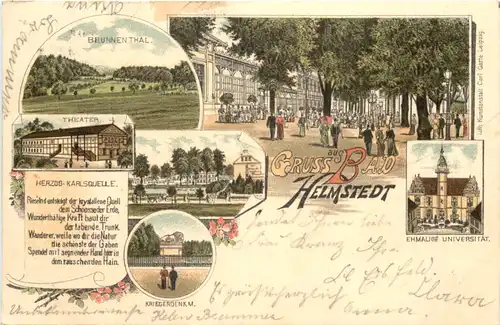 BRUNNENTHAL.
THEATER
HERZOG-KARLSQUELLE.
Rieselnd entsteigt der krystallene Quell
dem Schoosse der Erde,
Wunderthätige Kraft beut dir
der labende Trunk.
Wanderer, weile wo dir die Natur
die schönste der Gaben
Spendet mit segnender Hand hier in
dem rauschenden Hain.
GRUSS AUS BAD
HELMSTEDT
KRIEGERDENKM.
EHMALIGE UNIVERSITÄT.
Lith. Kunstanstalt Carl Garte Leipzig.
Sendet Ihnen Ihre
Es grüsst herzlich
Anna
Clara
Unbekannterweise Helen